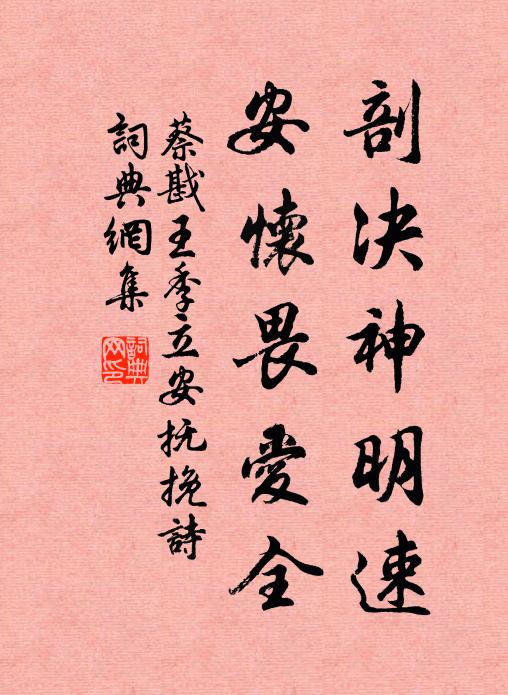 剖决神明速
安懷畏愛全
蔡戡王季立安抚挽詩
詞典網集
詞典网印